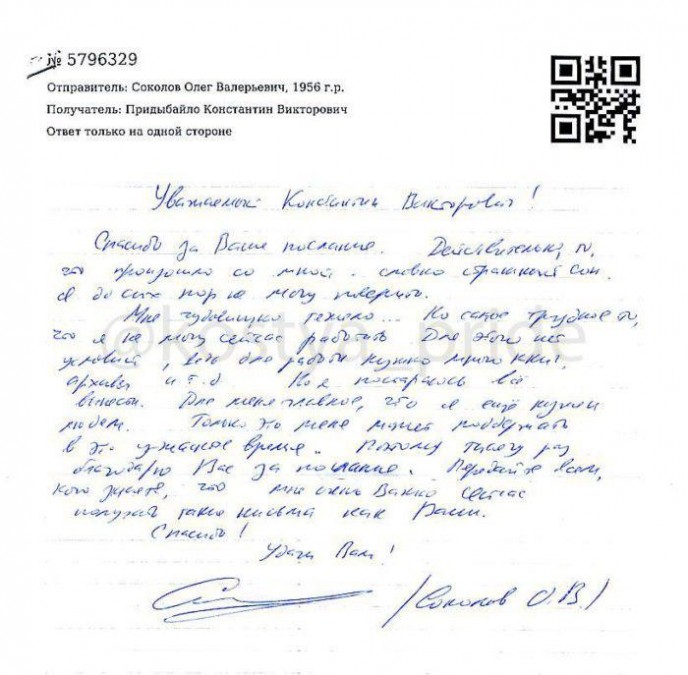 № 5796329
Отправитель: Соколов Олег Валерьевич, 1956 г.р.
Получатель: Придыбайло Константин Викторович
Ответ только на одной стороне
Уважаемый Константин Викторович!
Спасибо за Ваше послание. Действительно, то,
что произошло со мной - словно страшный сон.
Я до сих пор не могу поверить.
Мне чудовищно тяжело... Но самое трудное то,
что я не могу сейчас работать Для этого нет
условий, ибо для работы нужно много книг,
архивы и т.д. Но я постараюсь всё
вынести. Для меня главное, что я ещё нужен
людям. Только это меня может поддержать
в это ужасное время. Поэтому тысячу раз
благодарю Вас за послание. Передайте всем,
кого знаете, что мне очень важно сейчас
получать такие письма как Ваши.
Спасибо!
Удачи Вам!
/Соколов О.В./
@kostya_pride